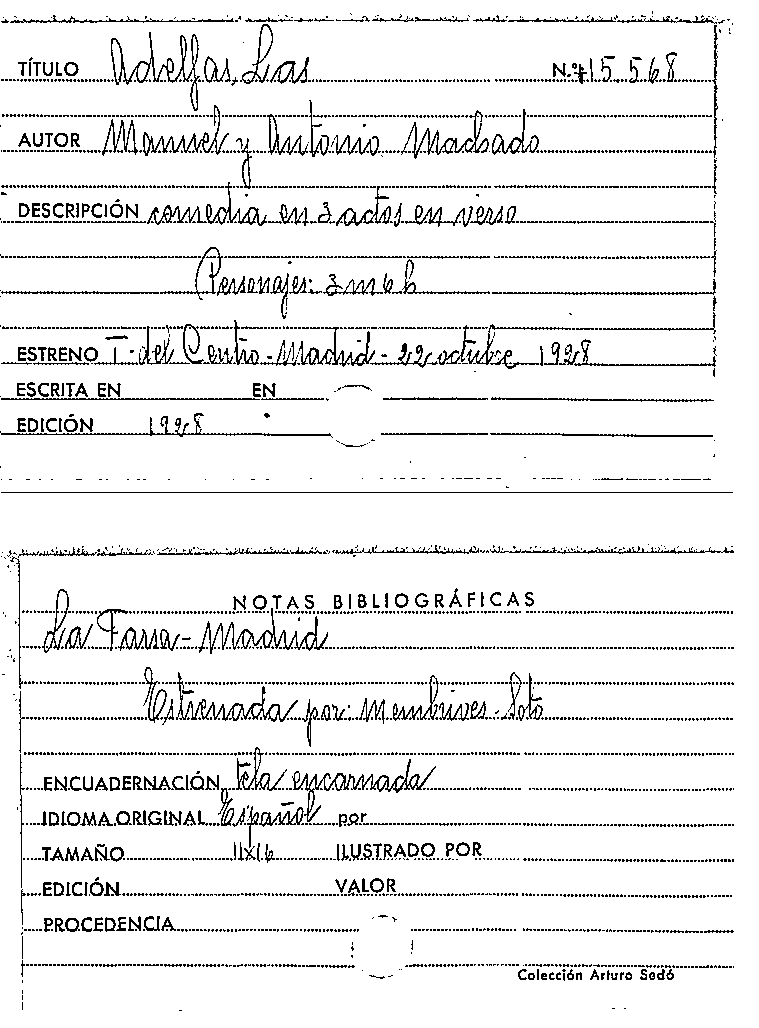 TÍTULO Adelfas, Las N.º 15.568
AUTOR Manuel y Antonio Machado
DESCRIPCIÓN comedia en 3 actos en verso
Personajes: 3 m 6 h
ESTRENO T. del Centro - Madrid - 22 octubre 1928
ESCRITA EN EN
EDICIÓN 1928
NOTAS BIBLIOGRÁFICAS
La Farsa - Madrid
Estrenada por: Membrives - Soto
ENCUADERNACIÓN tela encarnada
IDIOMA ORIGINAL Español por
TAMAÑO 11x16 ILUSTRADO POR
EDICIÓN VALOR
PROCEDENCIA
Colección Arturo Sedó